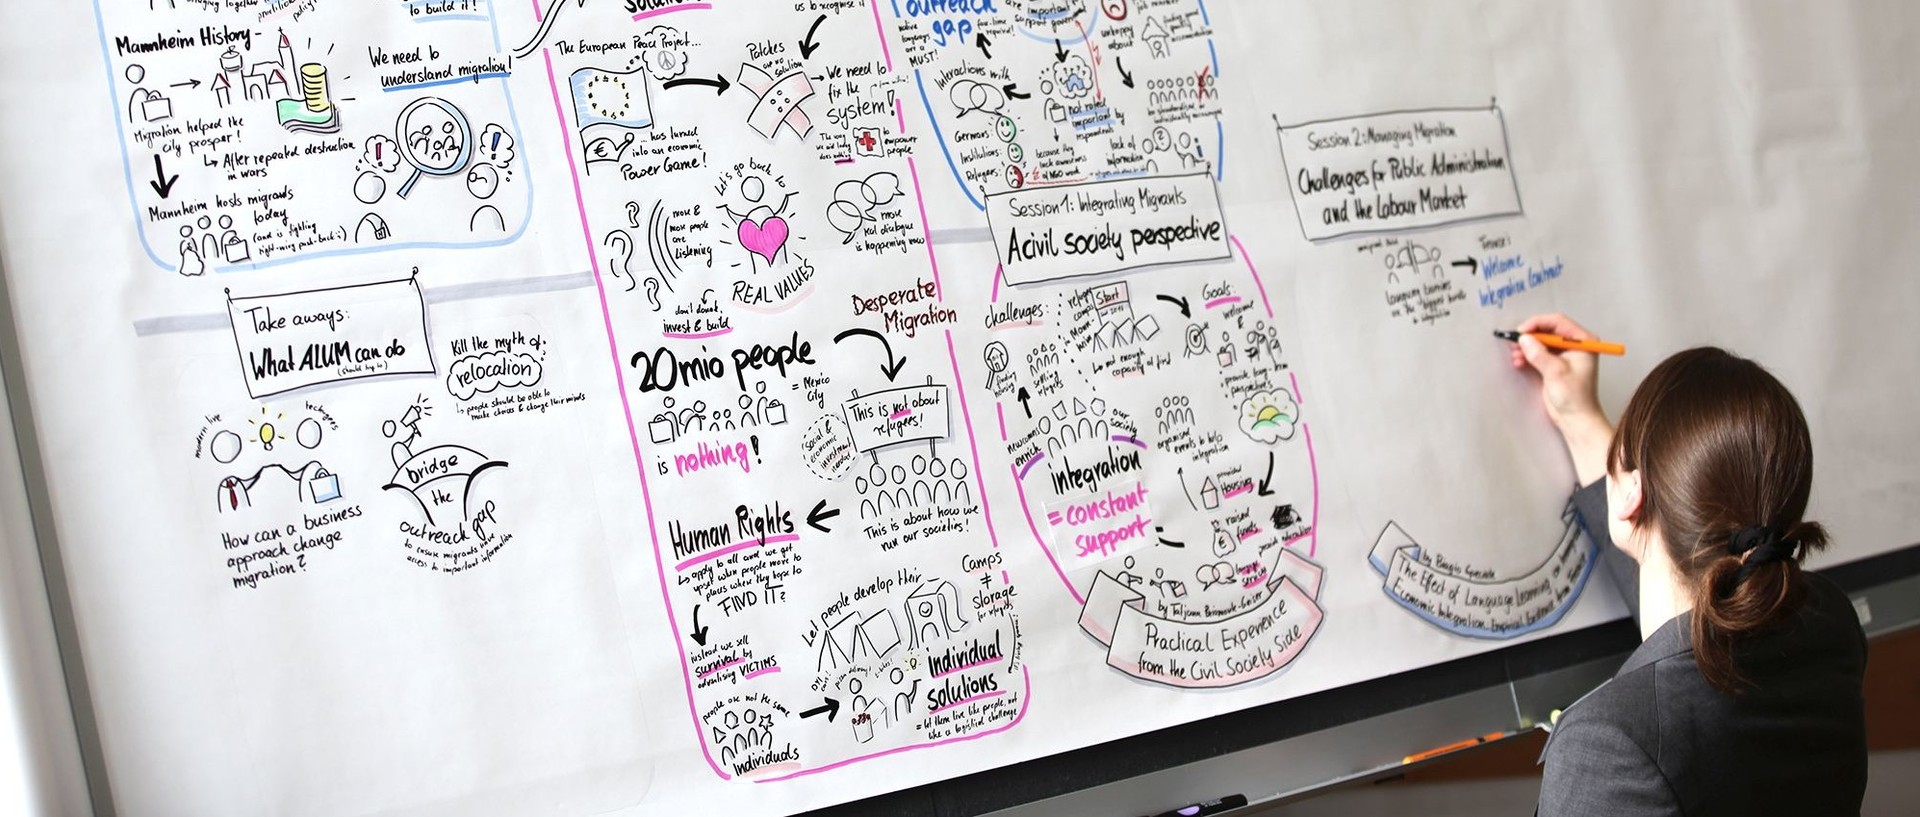 to build it!
Mannheim History-
We need to
understand migration!
Migration helped the
city prosper!
After repeated destruction
in wars
Mannheim hosts migrants
today
(and is fighting
right-wing push-back :)
Take aways:
What ALUM can do
(should try to)
Kill the myth of:
relocation
people should be able to
make choices & change their minds
modern live
techgees
How can a business
approach change
migration?
bridge
the
outreach gap
to ensure migrants have
access to important information
us to recognise it
The European Peace Project...
... has turned
into an economic
Power Game!
€
Patches
are no
solution
We need to
fix the
system!
to
empower
people
Let's go back to
REAL VALUES
more &
more people
are
listening
don't doubt,
invest & build
more
real dialogue
is happening now
20mio people
= Mexico
City
is nothing!
Desperate
Migration
This is not about
refugees!
social &
economic
investment
needed
This is about how we
run our societies!
Human Rights
apply to all and we get
upset when people move to
places where they hope to
FIND IT?
instead we sell
survival by
advertising VICTIMS
people are not the same
Individuals
Let people develop their
Camps
≠
storage
for refugees
individual
solutions
= let them live like people, not
like a logistical challenge
outreach
gap
are important
MUST!
Interactions with
Germans:
Institutions:
Refugees:
of NGO work
not rated
important by
respondents
because they
lack awareness
lack of
information
unhappy
about
Session 1: Integrating Migrants
A civil society perspective
challenges:
Start
Goals:
finding
housing
not enough
capacity at first
newcomers
enrich
our
society
integration
= constant
support
organised
events to help
integration
welcome
&
provide long-term
perspectives
provided
Housing
raised
funds
language
service
by Tatjana Briamonte-Geiser
Practical Experience
from the Civil Society Side
Session 2: Managing Migration
Challenges for Public Administration
and the Labour Market
Language barriers
are the biggest hurdle
to integration
Welcome
Integration Contract
by Biagio Speciale
The Effect of Language Learning on
Economic Integration. Empirical Evidence from